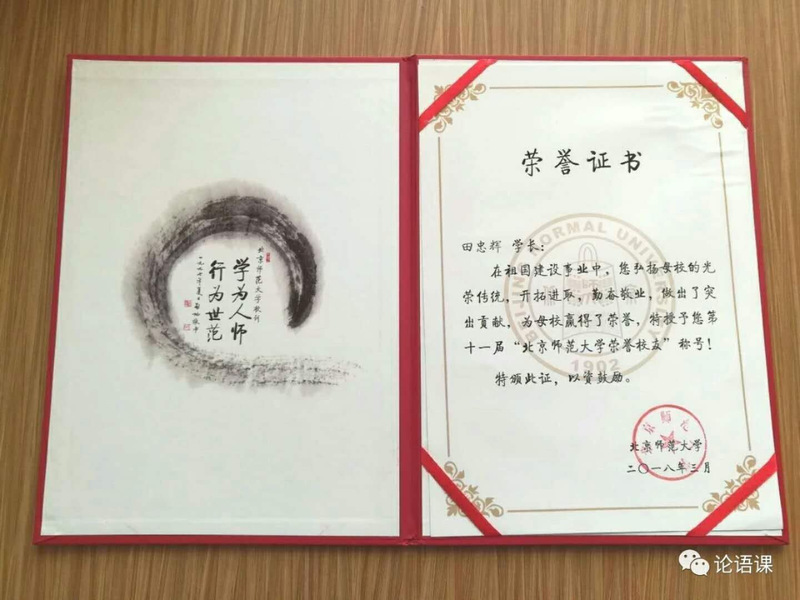 北京师范大学校训
学为人师
行为世范
荣誉证书
田忠辉 学长：
在祖国建设事业中，您弘扬母校的光
荣传统，开拓进取，勤奋敬业，做出了突
出贡献，为母校赢得了荣誉，特授予您第
十一届“北京师范大学荣誉校友”称号！
特颁此证，以资鼓励。
BEIJING NORMAL UNIVERSITY
1902
北京师范大学
二〇一八年三月
论语课